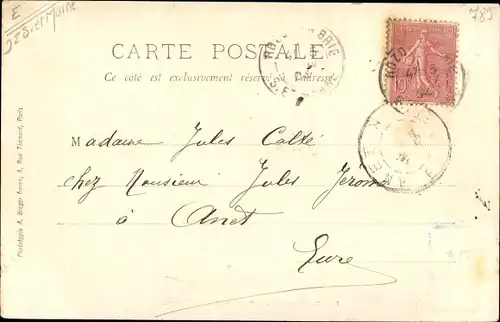 E
Sne et Marne
789
CARTE POSTALE
Ce côté est exclusivement réservé à l'adresse.
ROZOY EN BRIE
10
Madame Jules Colté
chez Monsieur Jules Jerome
à Anet
Eure
Phototypie A. Breger Frères, 9, Rue Thénard, Paris